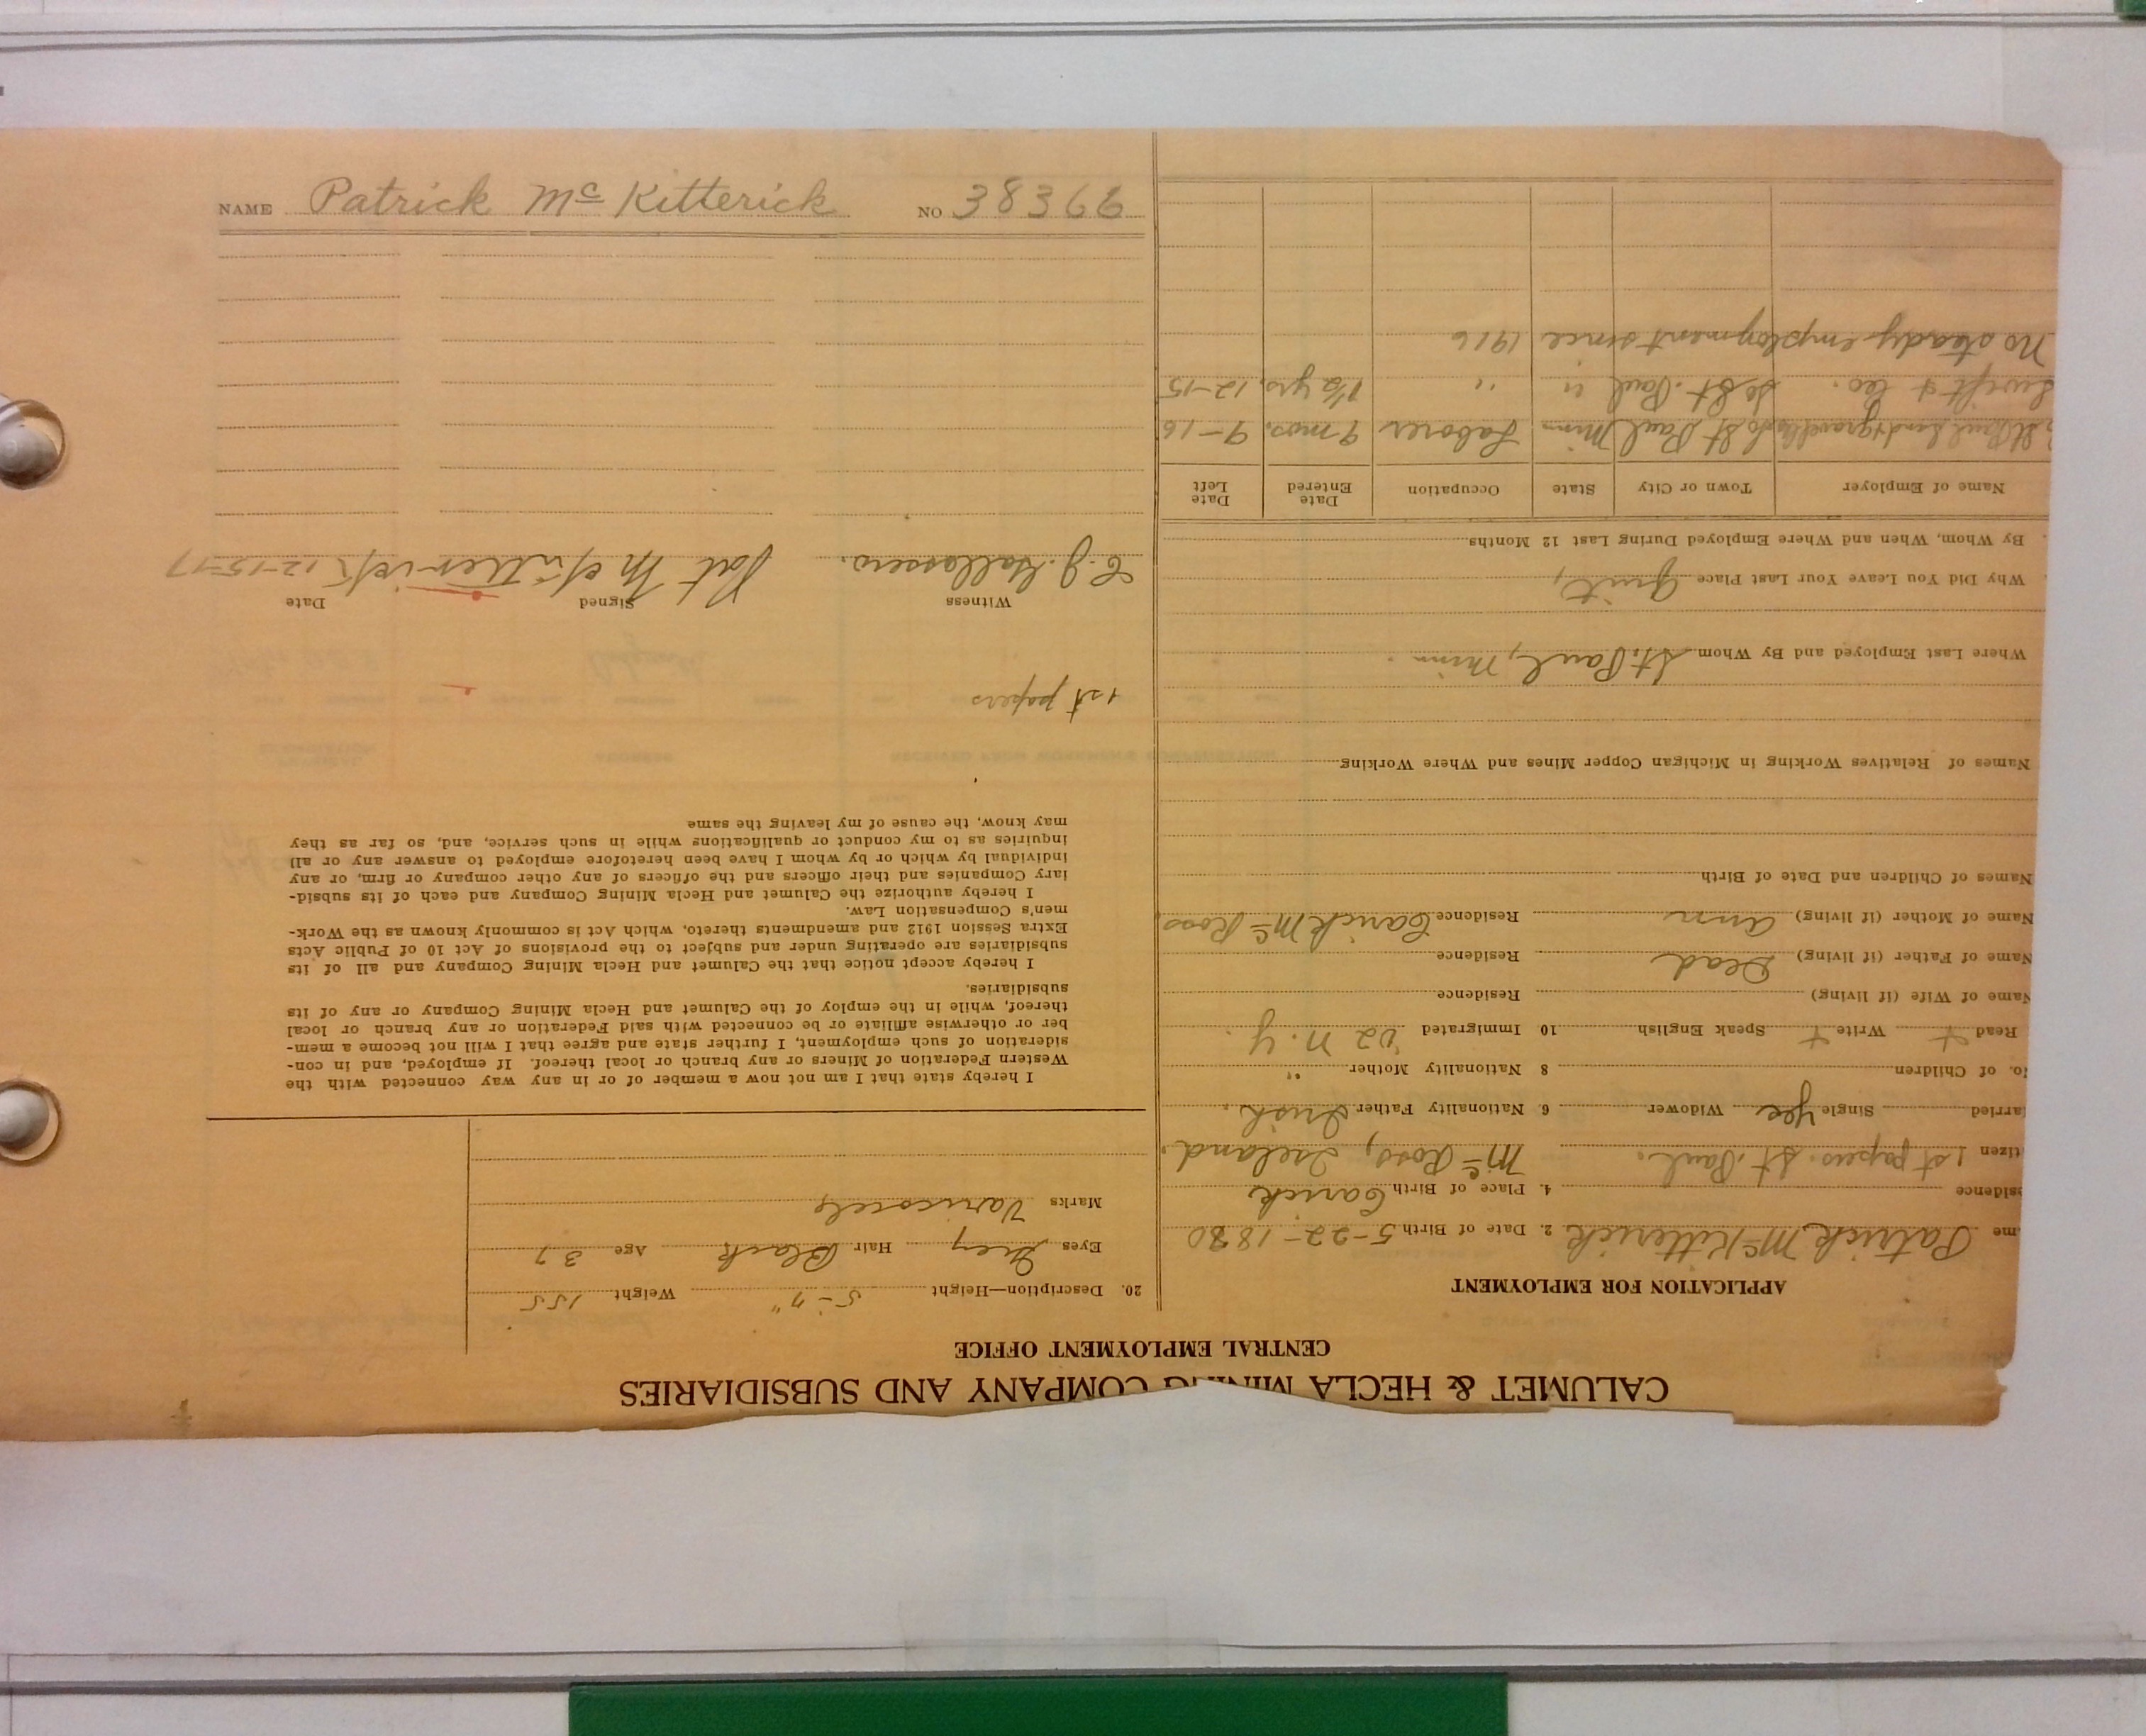 NAME Patrick Mc Kitterick NO 38366
CALUMET & HECLA MINING COMPANY AND SUBSIDIARIES
CENTRAL EMPLOYMENT OFFICE
APPLICATION FOR EMPLOYMENT
me Patrick McKitterick 2. Date of Birth 5-22-1880
esidence 4. Place of Birth Carick
tizen 1st papers. St. Paul. Mc Ross, Ireland.
arried Single Yes Widower 6. Nationality Father Irish.
o. of Children 8 Nationality Mother "
Read + Write + Speak English 10 Immigrated '02 N.Y.
Name of Wife (if living) Residence
Name of Father (if living) Dead Residence
Name of Mother (if living) Ann Residence Carick Mc Ross
Names of Children and Date of Birth
Names of Relatives Working in Michigan Copper Mines and Where Working
Where Last Employed and By Whom St. Paul, Minn.
Why Did You Leave Your Last Place Quit,
By Whom, When and Where Employed During Last 12 Months
Name of Employer Town or City State Occupation Date Entered Date Left
St Paul Sand & gravel So St Paul Minn Laborer 9 mos. 9-16
Swift & Co. So St. Paul " " 1½ yrs. 12-15
No steady employment since 1916
20. Description—Height 5-7" Weight 155
Eyes Grey Hair Black Age 37
Marks Varicocele
I hereby state that I am not now a member of or in any way connected with the
Western Federation of Miners or any branch or local thereof. If employed, and in con-
sideration of such employment, I further state and agree that I will not become a mem-
ber or otherwise affiliate or be connected with said Federation or any branch or local
thereof, while in the employ of the Calumet and Hecla Mining Company or any of its
subsidiaries.
I hereby accept notice that the Calumet and Hecla Mining Company and all of its
subsidiaries are operating under and subject to the provisions of Act 10 of Public Acts
Extra Session 1912 and amendments thereto, which Act is commonly known as the Work-
men's Compensation Law.
I hereby authorize the Calumet and Hecla Mining Company and each of its subsid-
iary Companies and their officers and the officers of any other company or firm, or any
individual by which or by whom I have been heretofore employed to answer any or all
inquiries as to my conduct or qualifications while in such service, and, so far as they
may know, the cause of my leaving the same
1st papers
Witness Signed Date
Pat McKitterick 12-15-17